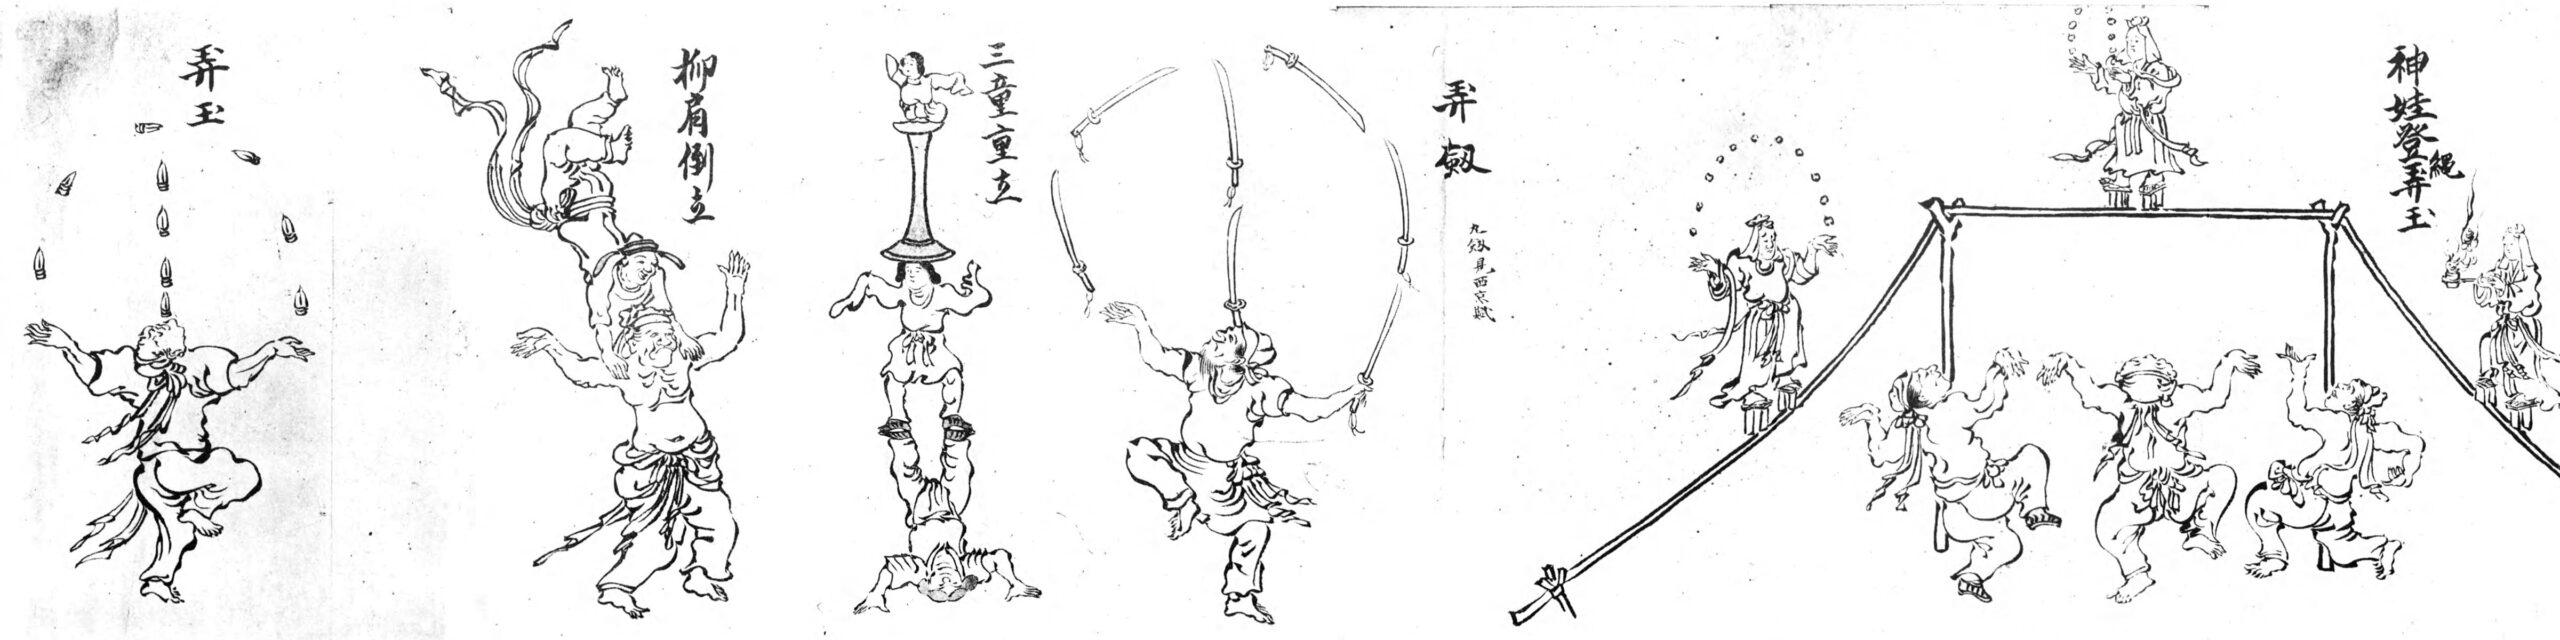 神娃登縄弄玉
弄剱
丸剱見西京賦
三童重立
柳肩倒立
弄玉